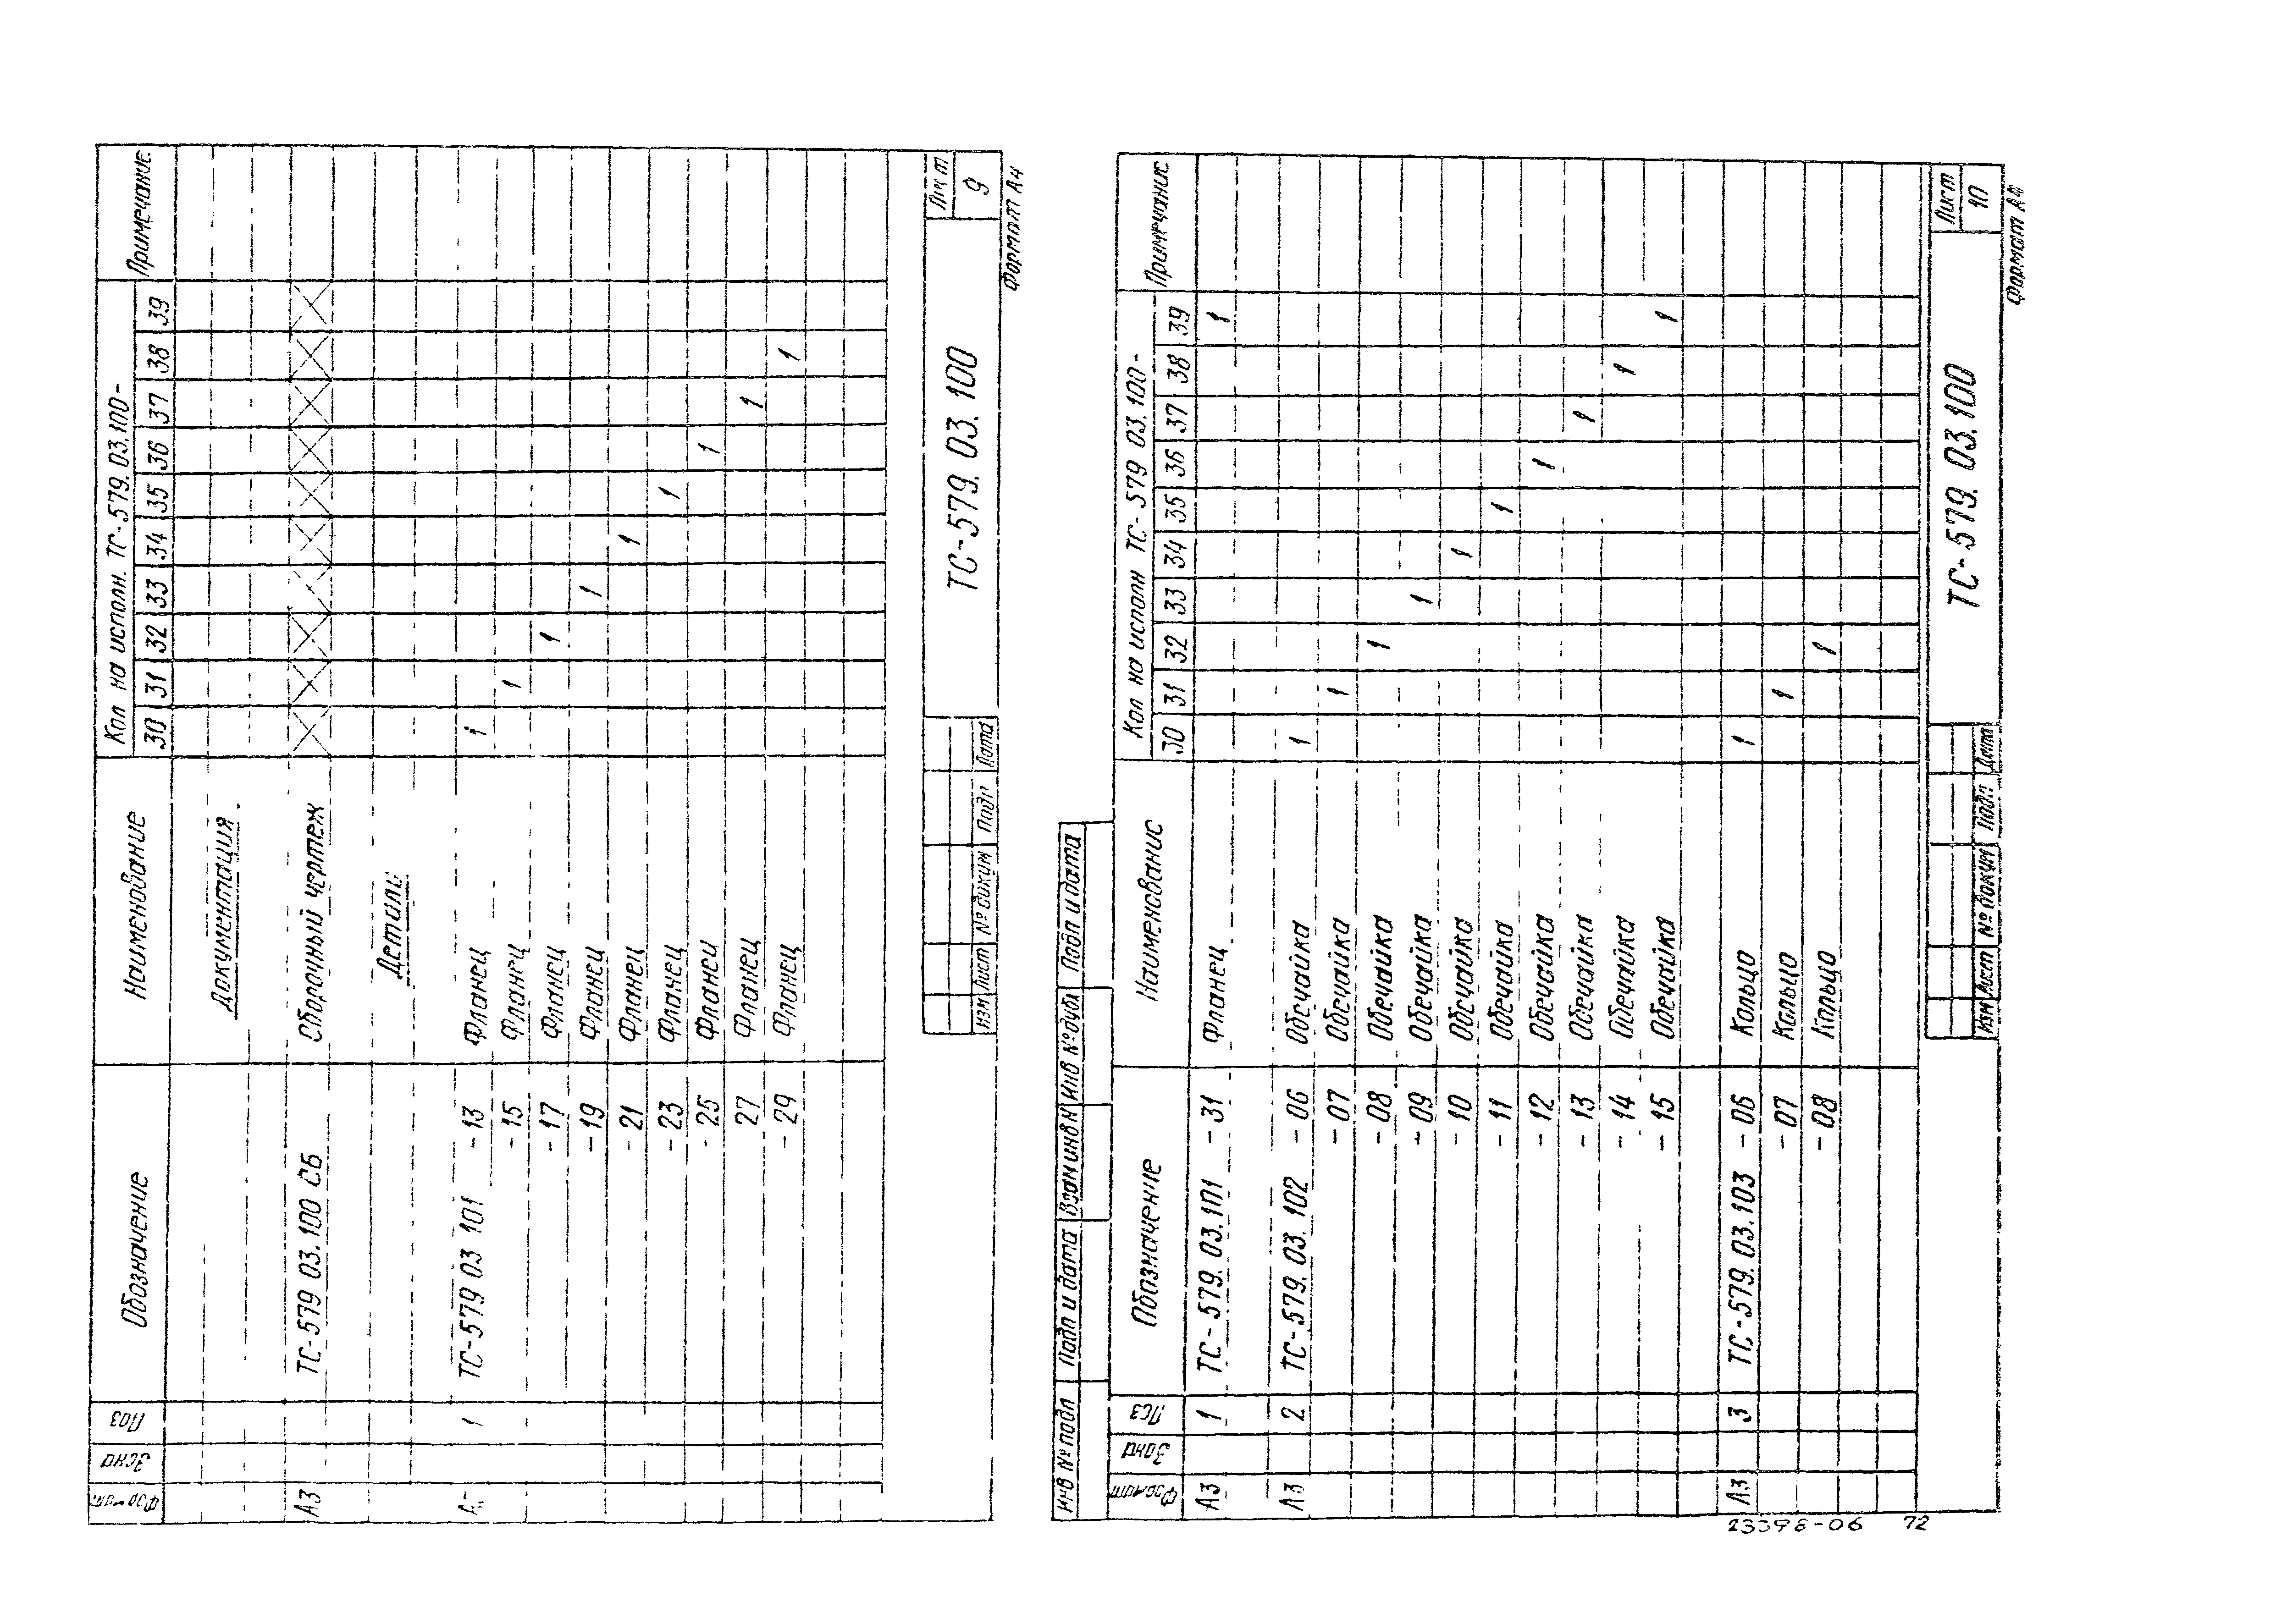 Формат Зона Поз Обозначение Наименование Кол на исполн. ТС-579.03.100- Примечание
30 31 32 33 34 35 36 37 38 39
Документация
А3 ТС-579 03.100 СБ Сборочный чертеж
Детали
1 ТС-579 03 101 -13 Фланец 1
-15 Фланец 1
-17 Фланец 1
-19 Фланец 1
-21 Фланец 1
-23 Фланец 1
-25 Фланец 1
27 Фланец 1
-29 Фланец 1
Изм Лист № докум Подп Дата
ТС-579. 03. 100
Лист
9
Формат А4
Инв № подл Подп и дата Взам инв N Инв № дубл Подп и дата
Формат Зона Поз Обозначение Наименование Кол на исполн ТС-579 03.100- Примечание
30 31 32 33 34 35 36 37 38 39
А3 1 ТС-579.03.101 -31 Фланец 1
А3 2 ТС-579.03.102 -06 Обечайка 1
-07 Обечайка 1
-08 Обечайка 1
-09 Обечайка 1
-10 Обечайка 1
-11 Обечайка 1
-12 Обечайка 1
-13 Обечайка 1
-14 Обечайка 1
-15 Обечайка 1
А3 3 ТС-579.03.103 -06 Кольцо 1
-07 Кольцо 1
-08 Кольцо 1
Изм Лист № докум Подп Дата
ТС-579. 03.100
Лист
10
Формат А4
23398-06 72